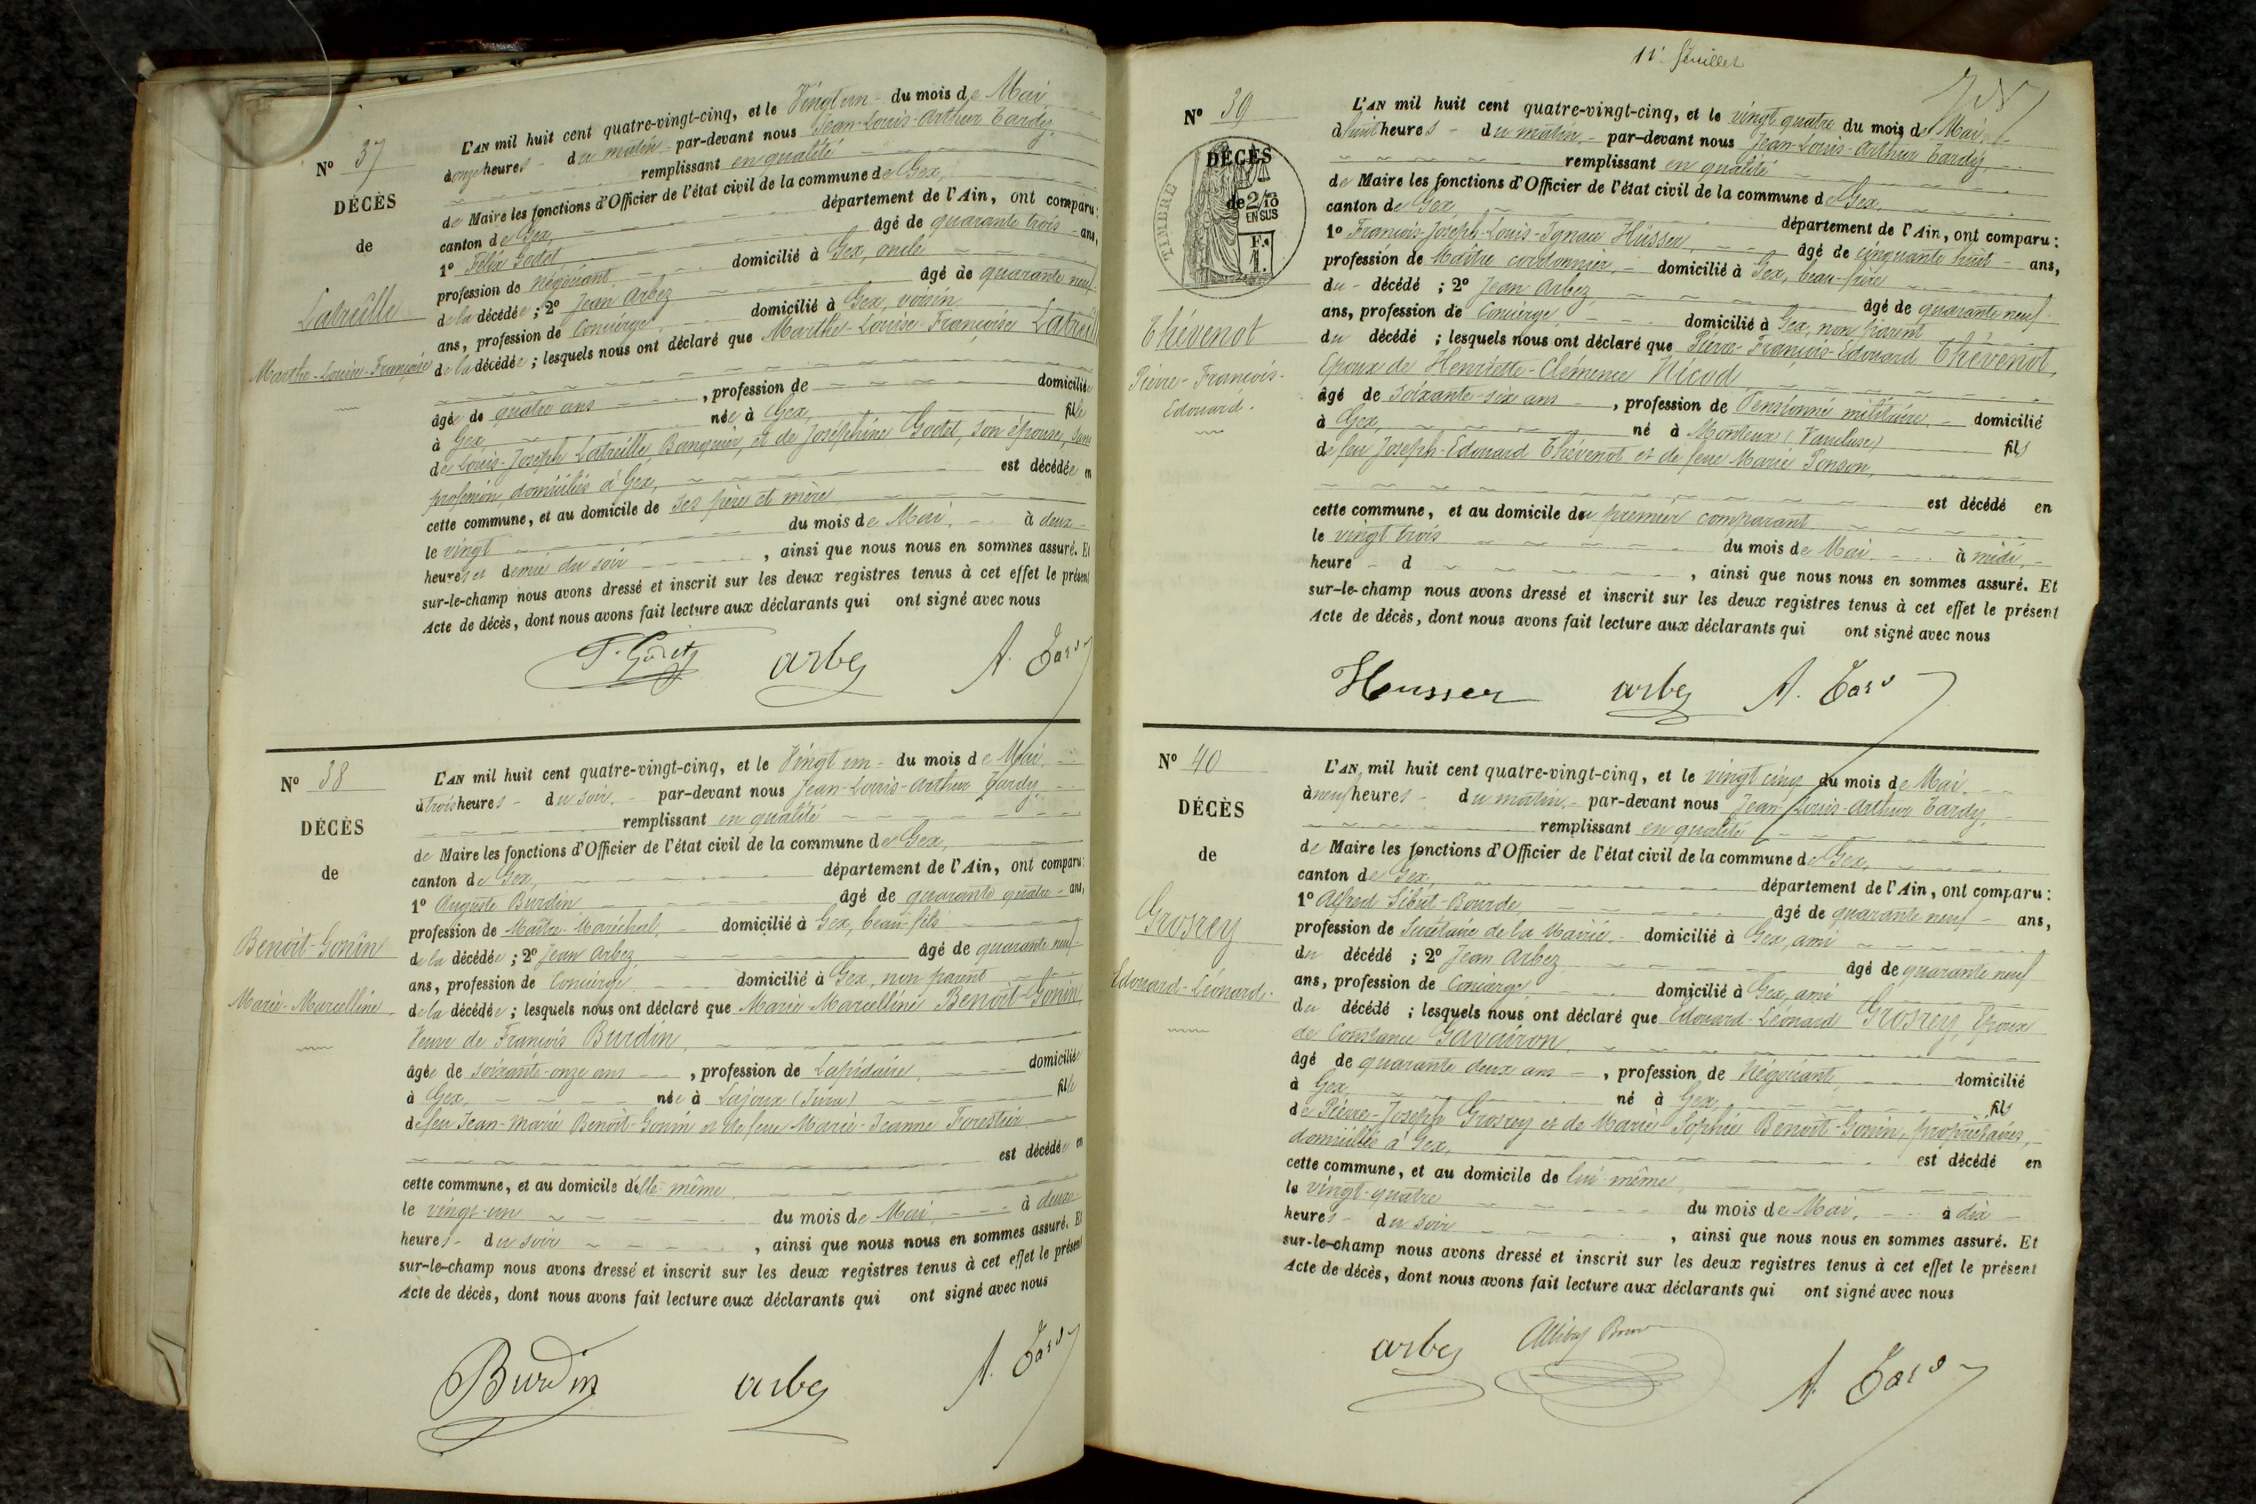 N° 37
DÉCÈS
de
Latreille
Marthe-Louise-Françoise
L'AN mil huit cent quatre-vingt-cinq, et le Vingt un du mois de Mai,
à onze heures du matin par-devant nous Jean-Louis-Arthur Tardy,
remplissant en qualité
de Maire les fonctions d'Officier de l'état civil de la commune de Gex,
canton de Gex, département de l'Ain, ont comparu:
1° Félix Godet, âgé de quarante trois ans,
profession de Négociant, domicilié à Gex, oncle
de la décédée; 2° Jean Arbez âgé de quarante neuf
ans, profession de Concierge, domicilié à Gex, voisin
de la décédée; lesquels nous ont déclaré que Marthe-Louise-Françoise Latreille
âgée de quatre ans, profession de domiciliée
à Gex, née à Gex, fille
de Louis-Joseph Latreille, Banquier, et de Joséphine Godet, son épouse, sans
profession, domiciliés à Gex, est décédée en
cette commune, et au domicile de ses père et mère
le vingt du mois de Mai, à deux
heures et demie du soir, ainsi que nous nous en sommes assuré. Et
sur-le-champ nous avons dressé et inscrit sur les deux registres tenus à cet effet le présent
Acte de décès, dont nous avons fait lecture aux déclarants qui ont signé avec nous
F. Godet arbez A. Tardy
N° 38
DÉCÈS
de
Benoit-Gonin
Marie-Marcelline
L'AN mil huit cent quatre-vingt-cinq, et le Vingt un du mois de Mai
à trois heures du soir, par-devant nous Jean-Louis-Arthur Tardy,
remplissant en qualité
de Maire les fonctions d'Officier de l'état civil de la commune de Gex,
canton de Gex, département de l'Ain, ont comparu:
1° Auguste Burdin âgé de quarante quatre ans,
profession de Maître-Maréchal, domicilié à Gex, beau-fils
de la décédée; 2° Jean Arbez âgé de quarante neuf
ans, profession de Concierge, domicilié à Gex, non parent
de la décédée; lesquels nous ont déclaré que Marie Marcelline Benoît-Gonin,
Veuve de François Burdin,
âgée de soixante-onze ans, profession de Lapidaire, domiciliée
à Gex, née à Lajoux (Jura) fille
de feu Jean-Marie Benoît-Gonin et de feue Marie-Jeanne Forestier
est décédée en
cette commune, et au domicile d'elle-même
le vingt-un du mois de Mai, à deux
heures du soir, ainsi que nous nous en sommes assuré. Et
sur-le-champ nous avons dressé et inscrit sur les deux registres tenus à cet effet le présent
Acte de décès, dont nous avons fait lecture aux déclarants qui ont signé avec nous
Burdin arbez A. Tardy
11e feuillet
N° 39
DÉCÈS
de
TIMBRE
2/10
EN SUS
F.
1.
Thévenot
Pierre-François-
Edouard.
L'AN mil huit cent quatre-vingt-cinq, et le vingt quatre du mois de Mai,
à huit heures du matin, par-devant nous Jean-Louis-Arthur Tardy,
remplissant en qualité
de Maire les fonctions d'Officier de l'état civil de la commune de Gex,
canton de Gex, département de l'Ain, ont comparu:
1° François-Joseph-Louis-Ignace Hüsser âgé de cinquante huit ans,
profession de Maître cordonnier, domicilié à Gex, beau-frère
du décédé; 2° Jean Arbez, âgé de quarante neuf
ans, profession de Concierge, domicilié à Gex, non parent
du décédé; lesquels nous ont déclaré que Pierre-François-Edouard Thévenot,
Epoux de Henriette-Clémence Nicod,
âgé de soixante-six ans, profession de Pensionné militaire, domicilié
à Gex, né à Monteux (Vaucluse) fils
de feu Joseph-Edouard Thévenot et de feue Marie Ponson,
est décédé en
cette commune, et au domicile du premier comparant
le vingt trois du mois de Mai à midi,
heure d, ainsi que nous nous en sommes assuré. Et
sur-le-champ nous avons dressé et inscrit sur les deux registres tenus à cet effet le présent
Acte de décès, dont nous avons fait lecture aux déclarants qui ont signé avec nous
Heusser arbez A. Tardy
N° 40
DÉCÈS
de
Grosrey
Edouard-Léonard.
L'AN mil huit cent quatre-vingt-cinq, et le vingt cinq du mois de Mai.
à neuf heures du matin, par-devant nous Jean-Louis-Arthur Tardy,
remplissant en qualité
de Maire les fonctions d'Officier de l'état civil de la commune de Gex,
canton de Gex, département de l'Ain, ont comparu:
1° Alfred Bourde âgé de quarante neuf ans,
profession de Secrétaire de la Mairie, domicilié à Gex, ami
du décédé; 2° Jean Arbez âgé de quarante neuf
ans, profession de Concierge, domicilié à Gex, ami
du décédé; lesquels nous ont déclaré que Edouard-Léonard Grosrey, Epoux
de Constance Gavairon,
âgé de quarante deux ans, profession de Négociant, domicilié
à Gex, né à Gex, fils
de Pierre-Joseph Grosrey et de Marie-Sophie Benoît-Gonin, propriétaires,
domiciliés à Gex, est décédé en
cette commune, et au domicile de lui-même
le vingt-quatre du mois de Mai, à dix
heures du soir, ainsi que nous nous en sommes assuré. Et
sur-le-champ nous avons dressé et inscrit sur les deux registres tenus à cet effet le présent
Acte de décès, dont nous avons fait lecture aux déclarants qui ont signé avec nous
arbez A. Tardy